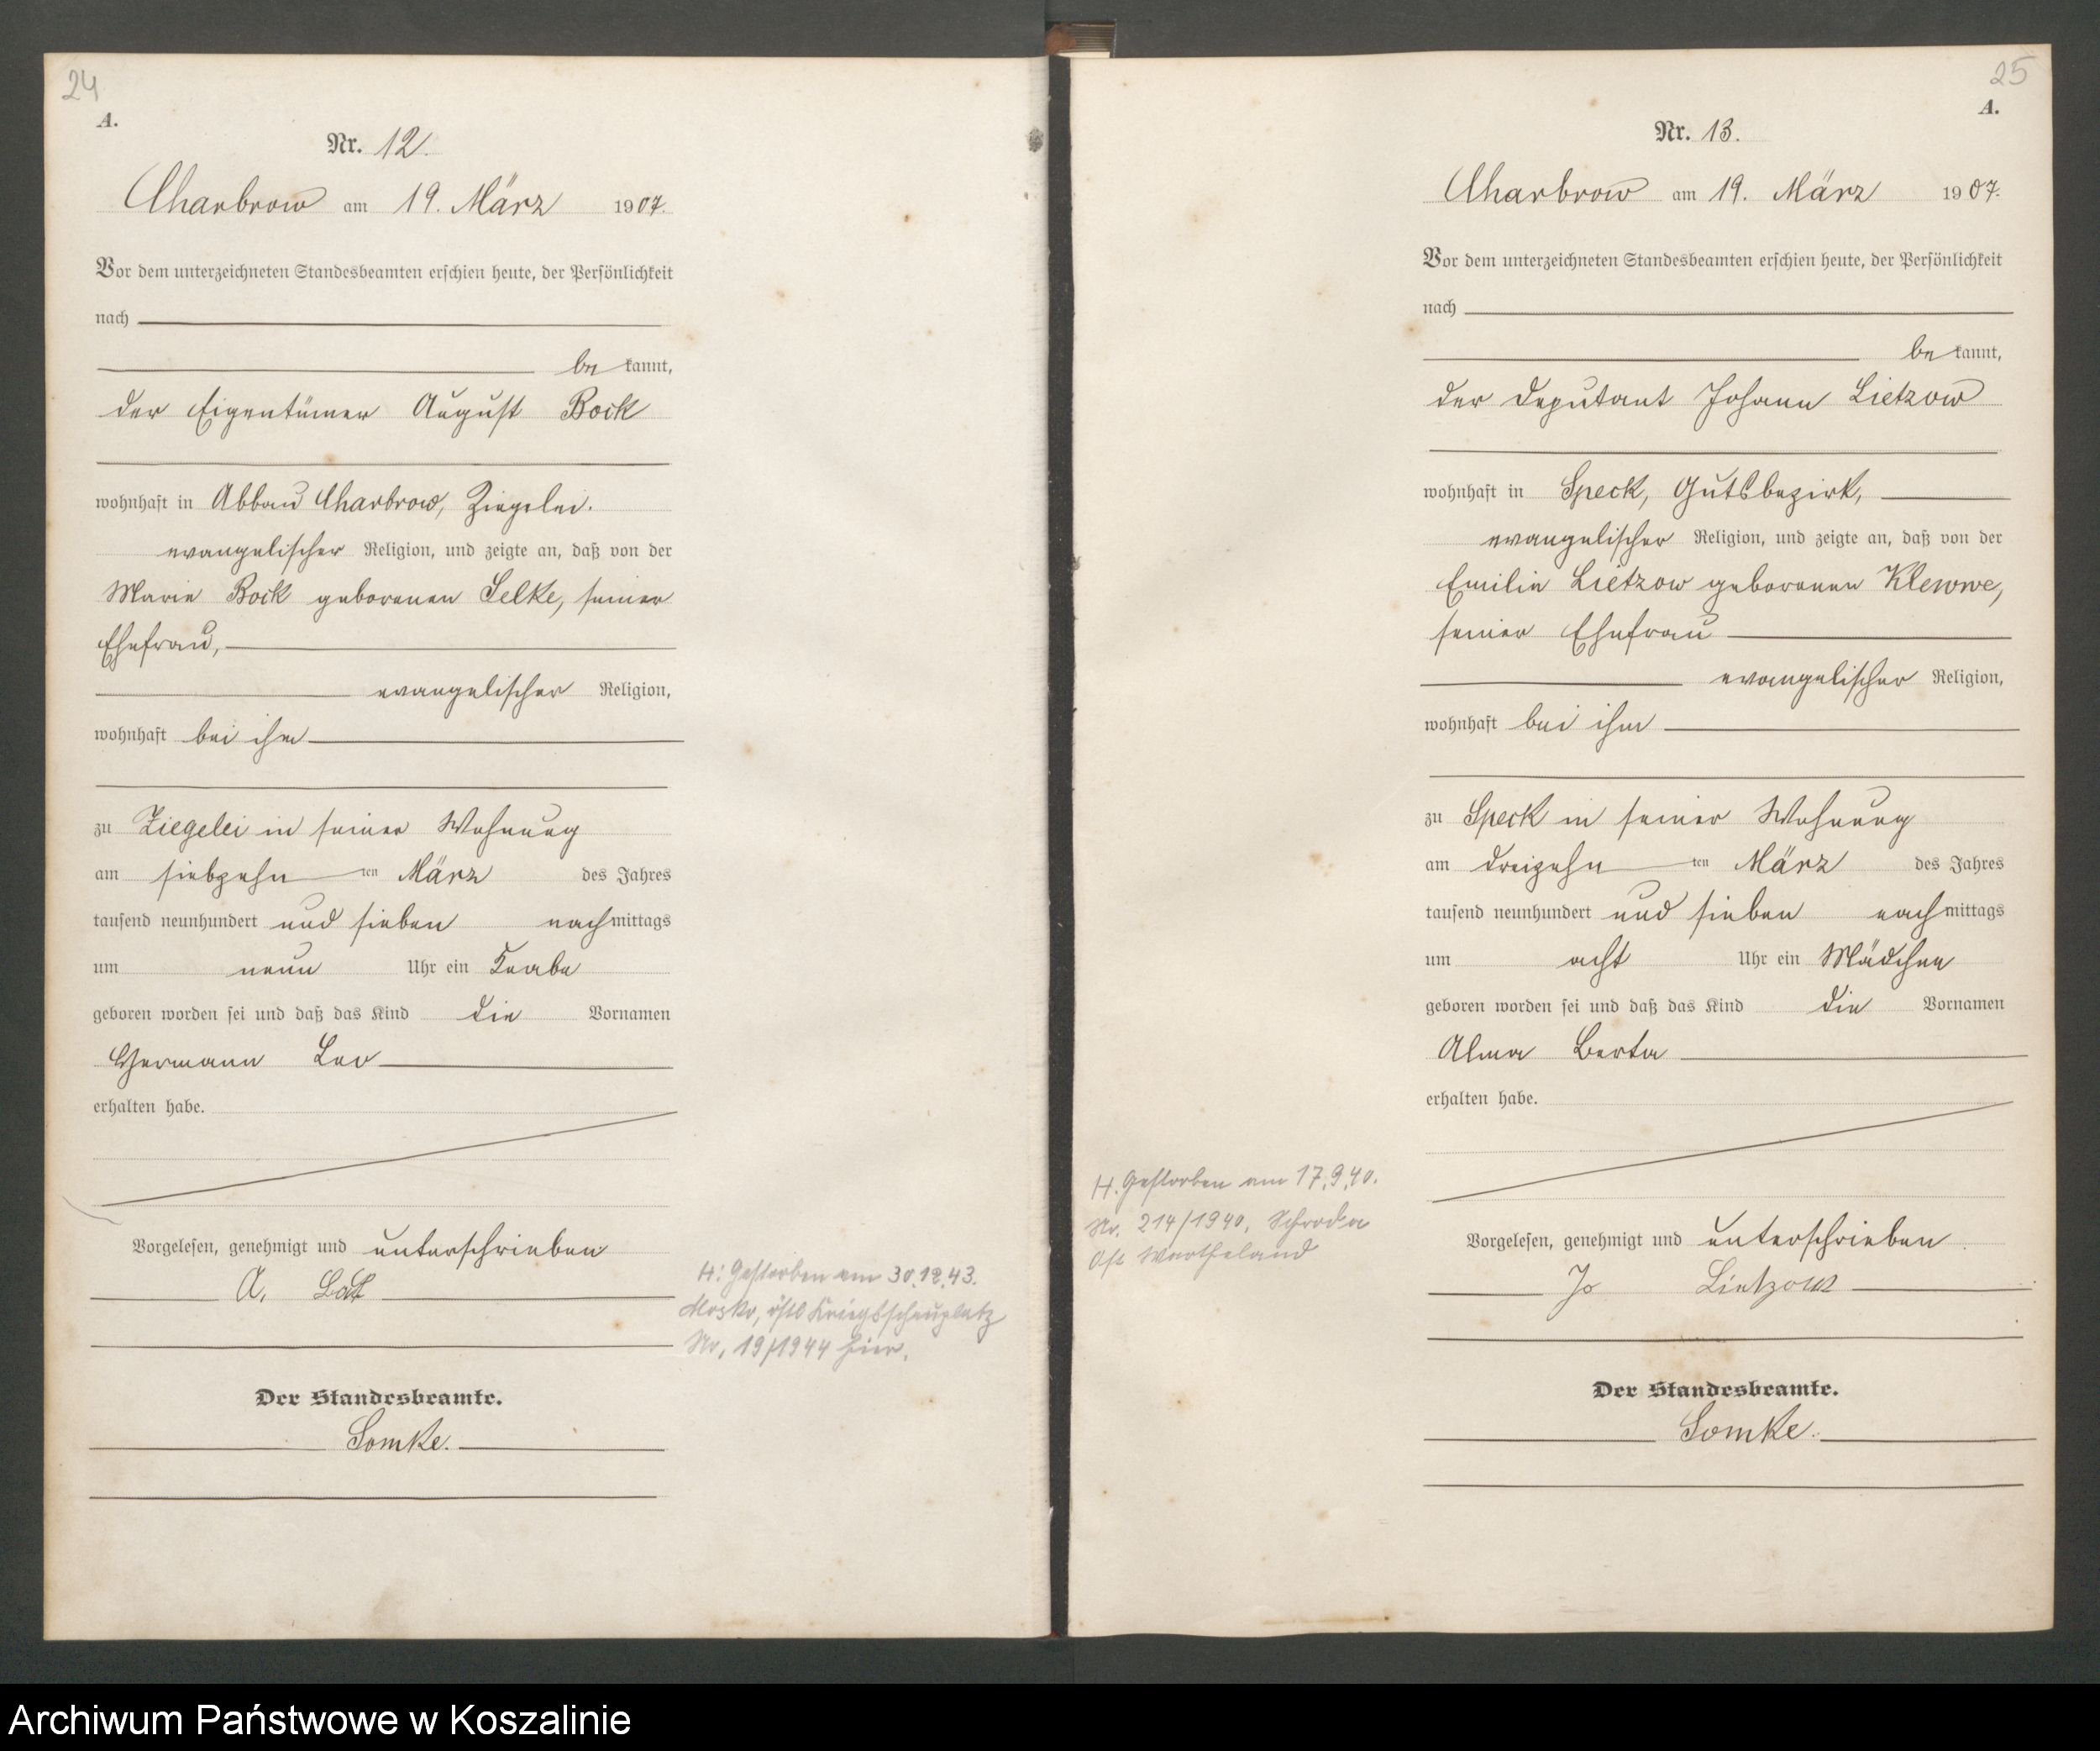 24
A.
Nr. 12.
Charbrow am 19. März 1907.
Vor dem unterzeichneten Standesbeamten erschien heute, der Persönlichkeit
nach
be kannt,
der Eigentümer August Bock
wohnhaft in Abbau Charbrow, Ziegelei.
evangelischer Religion, und zeigte an, daß von der
Marie Bock geborenen Selke, seiner
Ehefrau,
evangelischer Religion,
wohnhaft bei ihm
zu Ziegelei in seiner Wohnung
am siebzehn ten März des Jahres
tausend neunhundert und sieben nachmittags
um neun Uhr ein Knabe
geboren worden sei und daß das Kind die Vornamen
Hermann Leo
erhalten habe.
Vorgelesen, genehmigt und unterschrieben
A.
H: Gestorben am 30.12.43.
östl Kriegsschauplatz
Nr. 19/1944 hier.
Der Standesbeamte.
Somke.
25
A.
Nr. 13.
Charbrow am 19. März 1907.
Vor dem unterzeichneten Standesbeamten erschien heute, der Persönlichkeit
nach
be kannt,
der Deputant Johann Lietzow
wohnhaft in Speck, Gutsbezirk,
evangelischer Religion, und zeigte an, daß von der
Emilie Lietzow geborenen Klewwe,
seiner Ehefrau
evangelischer Religion,
wohnhaft bei ihm
zu Speck in seiner Wohnung
am dreizehn ten März des Jahres
tausend neunhundert und sieben nachmittags
um acht Uhr ein Mädchen
geboren worden sei und daß das Kind die Vornamen
Alma Berta
erhalten habe.
H. Gestorben am 17.9.40.
Nr. 214/1940, Schroda
Wartheland
Vorgelesen, genehmigt und unterschrieben
Jo Lietzow
Der Standesbeamte.
Somke.
Archiwum Państwowe w Koszalinie